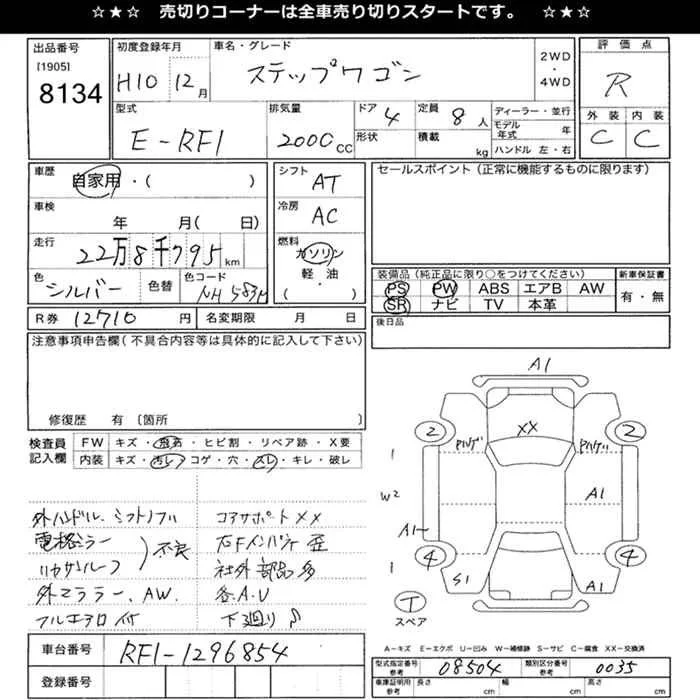 ☆★☆ 売切りコーナーは全車売り切りスタートです。 ☆★☆
出品番号
[1905]
8134
初度登録年月
H10 12月
車名・グレード
ステップワゴン
2WD
・
4WD
評価点
R
外装 内装
C C
型式
E-RF1
排気量
2000 CC
ドア 4
形状
定員 8人
積載 kg
ディーラー・並行
モデル年式 年
ハンドル 左・右
車歴
自家用・( )
車検
年 月( 日)
走行
22万8千795 km
色
シルバー
色替
色コード
NH583M
シフト
AT
冷房
AC
燃料
ガソリン
軽・油
( )
セールスポイント(正常に機能するものに限ります)
装備品(純正品に限り○をつけてください)
PS PW ABS エアB AW
SR ナビ TV 本革
新車保証書
有・無
R券 12710円
名変期限 月 日
後日品
注意事項申告欄(不具合内容等は具体的に記入して下さい)
修復歴 有〔箇所 〕
検査員
記入欄
FW キズ・飛石・ヒビ割・リペア跡・X要
内装 キズ・汚レ・コゲ・穴・スレ・キレ・破レ
外ハンドル、シフトノブ
電格ミラー
不良
外ミラー、AW、
フルエアロ付
コアサポートXX
右Fインパネ歪
社外部品多
各A.U
下廻りS
A1
2 2
XX
A1
W2
A1~
4 4
S1
A1
T
スペア
A−キズ E−エクボ U−凹み W−補修跡 S−サビ C−腐食 XX−交換済
車台番号
RF1-1296854
登録番号
型式指定番号
参考
08504
類別区分番号
参考
0035
車庫証明用
参考
長さ cm 幅 cm 高さ cm